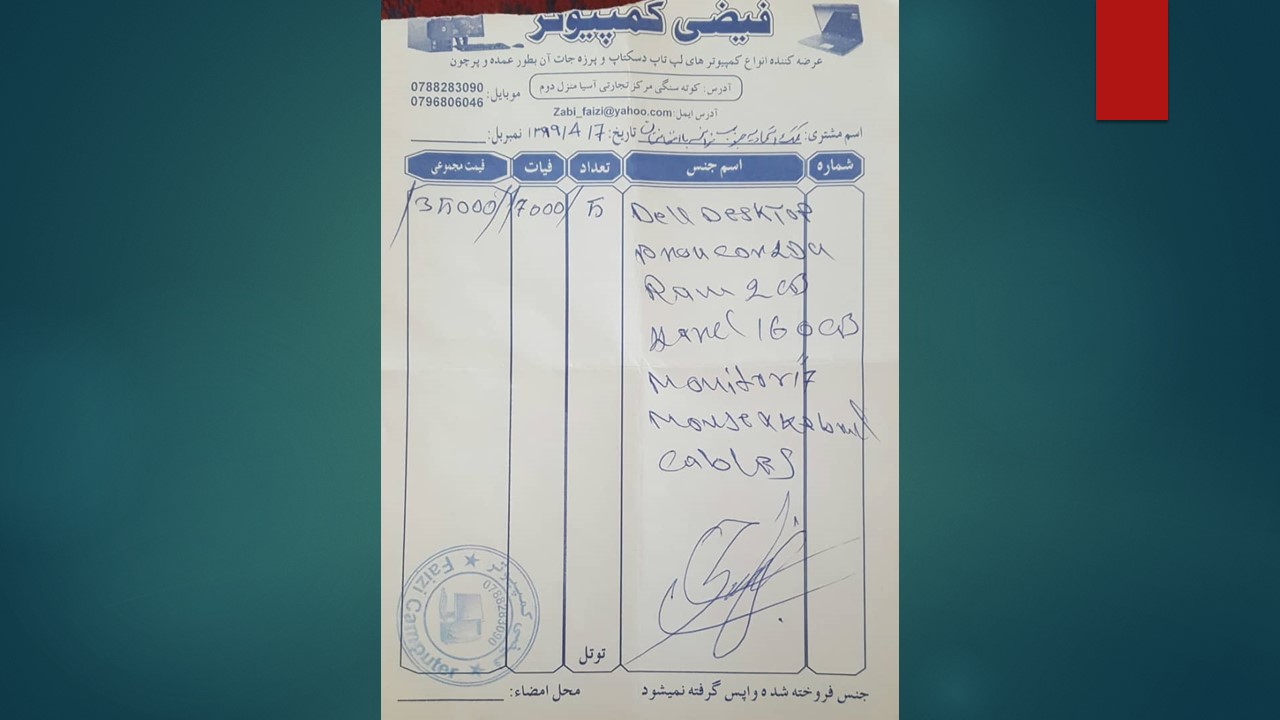 فیضی کمپیوتر
عرضه کننده انواع کمپیوتر های لپ تاپ دسکتاپ و پرزه جات آن بطور عمده و پرچون
آدرس: کوته سنگی مرکز تجارتی آسیا منزل دوم
موبایل: 0788283090
0796806046
آدرس ایمل: Zabi_faizi@yahoo.com
اسم مشتری: تاریخ: 17/4/1399 نمبربل:
شماره اسم جنس تعداد فیات قیمت مجموعی
Dell Desktop 5 7000/ 35000/
Ram 2 GB
Hard 160 GB
Monitor 17"
Mouse
Cables
فیضی کمپیوتر
0788283090
Faizi Camputer
توتل
جنس فروخته شده واپس گرفته نمیشود محل امضاء: